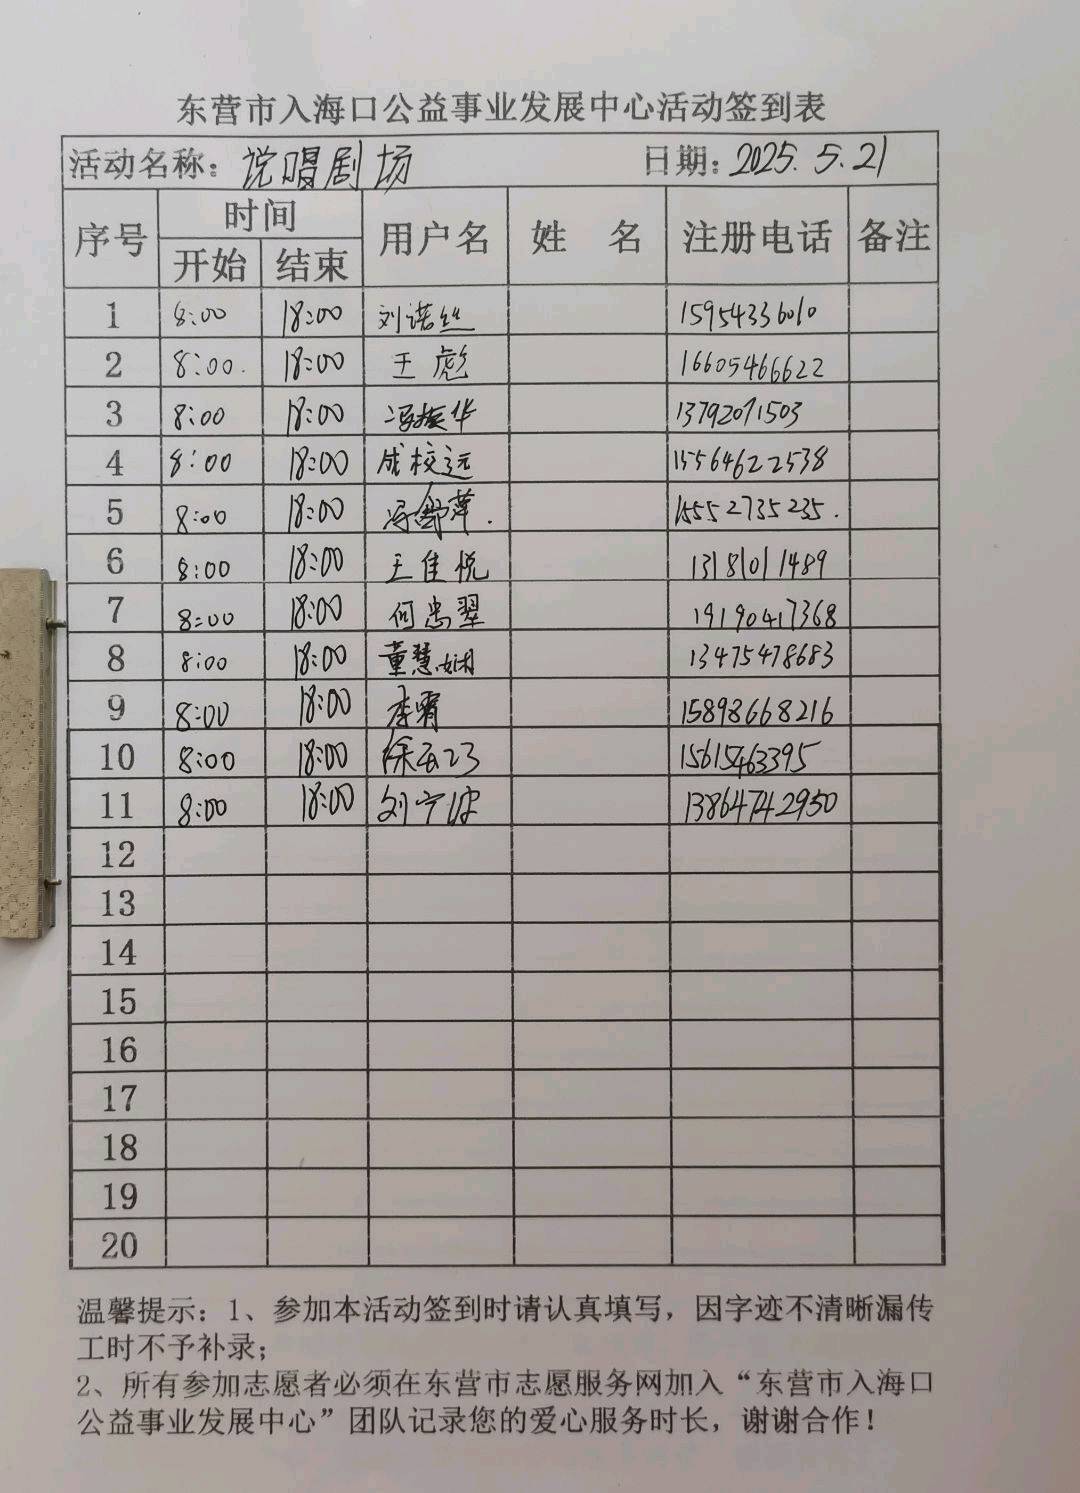 东营市入海口公益事业发展中心活动签到表
活动名称：说唱剧场 日期：2025.5.21
序号 时间 用户名 姓 名 注册电话 备注
开始 结束
1 8:00 18:00 刘诺丝 15954336010
2 8:00. 18:00 王彪 16605466622
3 8:00 18:00 冯振华 13792071503
4 8:00 18:00 成校远 15564622538
5 8:00 18:00 冯舒萍. 15552735235.
6 8:00 18:00 王佳悦 13181011489
7 8:00 18:00 何忠翠 19190417368
8 8:00 18:00 董慧娴 13475478683
9 8:00 18:00 李霄 15898668216
10 8:00 18:00 徐 15615463395
11 8:00 18:00 刘宁波 13864742950
12
13
14
15
16
17
18
19
20
温馨提示：1、参加本活动签到时请认真填写，因字迹不清晰漏传
工时不予补录；
2、所有参加志愿者必须在东营市志愿服务网加入“东营市入海口
公益事业发展中心”团队记录您的爱心服务时长，谢谢合作！